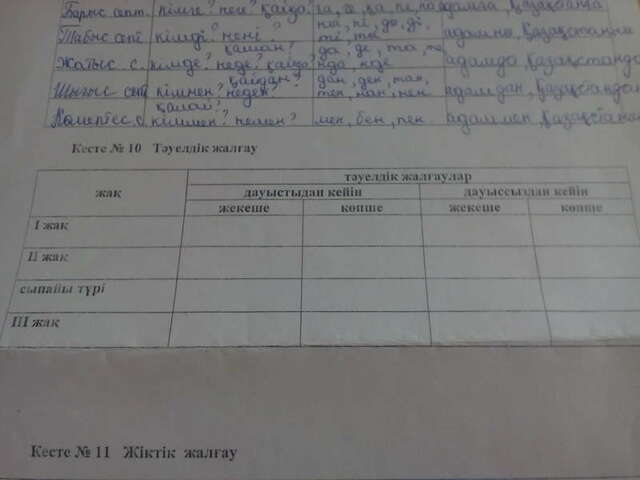 Барыс септ. кімге? неге? қайда? ға, ге, қа, ке, на адамға, Қазақстанға
Табыс септ кімді? нені? ны, ні, ды, ді, ты, ті адамды, Қазақстанды
Жатыс с. кімде? неде? қайда? қашан? да, де, та, те, нда, нде адамда, Қазақстанда
Шығыс септ кімнен? неден? қайдан? дан, ден, тан, тен, нан, нен адамдан, Қазақстаннан
Көмектес с. кіммен? немен? қалай? мен, бен, пен адаммен, Қазақстанмен
Кесте № 10 Тәуелдік жалғау
жақ тәуелдік жалғаулар
дауыстыдан кейін дауыссыздан кейін
жекеше көпше жекеше көпше
I жақ
II жақ
сыпайы түрі
III жақ
Кесте № 11 Жіктік жалғау